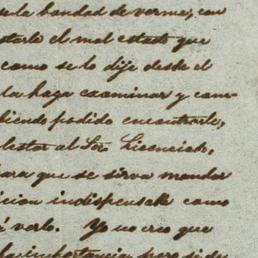 se la bondad de verme, con
starle el mal estado que
como se lo dije desde el
la haga examinar y cam-
biendo podido encontrarle,
lestar al Sor Licenciado,
para que se sirva mandar
icion indispensable como
á verlo. Yo no creo que
la importancia, pero si de